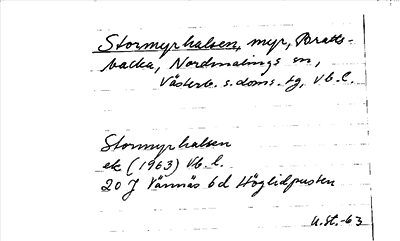 Stormyrhalsen, myr, Bratts-
backa, Nordmalings sn,
Västerb. s. doms. tg, Vb. l.
Stormyrhalsen
ek (1963) Vb. l.
20 J Vännäs 6d Höglidpusten
U.St.-63